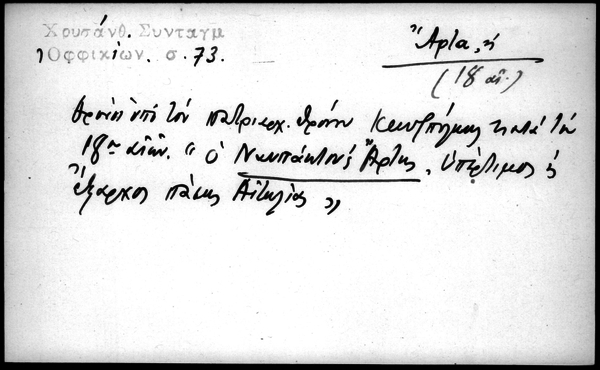 Χρυσάνθ. Συνταγμ
Ὀφφικίων. σ. 73.
Ἄρτα, ἡ
(18 αἰ.)
ὑπὸ τὸν πατριαρχ. θρόνον Κωνσ/πόλεως κατὰ τὸν
18ον αἰῶν. "ὁ Ναυπάκτου ς Ἄρτης, ὑπέρτιμος ς
ἔξαρχος πάσης Αἰτωλίας"